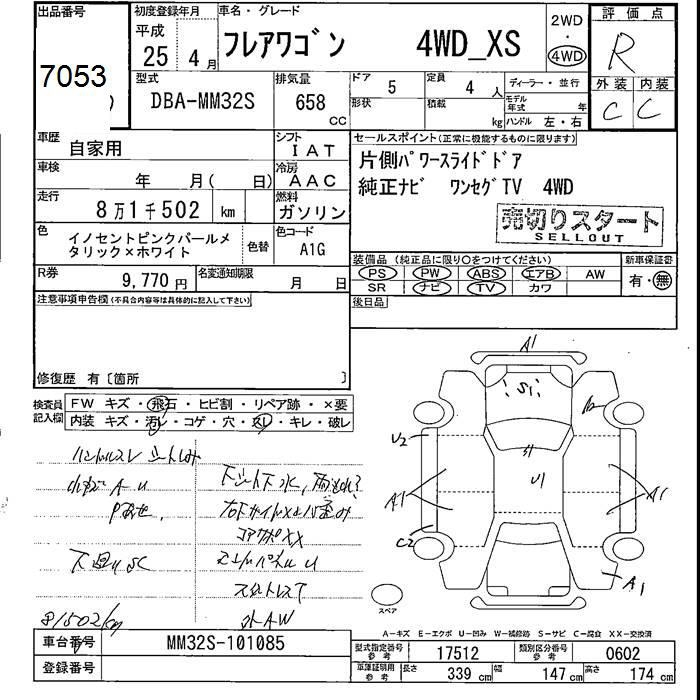 出品番号
7053
初度登録年月
平成
25年 4月
車名・グレード
フレアワゴン 4WD_XS
2WD
・
4WD
評価点
R
外装 内装
C C
型式
DBA-MM32S
排気量
658
CC
ドア 5
定員 4 人
ディーラー・並行
形状
積載 kg
モデル年式 年
ハンドル 左・右
車歴 自家用
シフト IAT
車検 年 月( 日)
冷房 AAC
走行 8万1千502 km
燃料 ガソリン
色 イノセントピンクパールメタリック×ホワイト
色替
色コード A1G
R券 9,770円
名変通知期限 月 日
セールスポイント(正常に機能するものに限ります)
片側パワースライドドア
純正ナビ ワンセグTV 4WD
売切りスタート
SELLOUT
装備品(純正品に限り○をつけてください)
PS PW ABS エアB AW
SR ナビ TV カワ
新車保証書
有・無
後日品
注意事項申告欄(不具合内容等は具体的に記入して下さい)
修復歴 有〔箇所 〕
検査員記入欄
FW キズ・飛石・ヒビ割・リペア跡・×要
内装 キズ・汚レ・コゲ・穴・スレ・キレ・破レ
ハンドルスレ シートしみ
小キズ A U
下廻りSC
スペアレス
外AW
81502km
A1
S1
U2
A1
U1
A1
C2
A1
スペア
A-キズ E-エクボ U-凹み W-補修跡 S-サビ C-腐食 XX-交換済
車台番号 MM32S-101085
登録番号
型式指定番号 参考 17512
類別区分番号 参考 0602
車庫証明用 参考 長さ 339 cm 幅 147 cm 高さ 174 cm